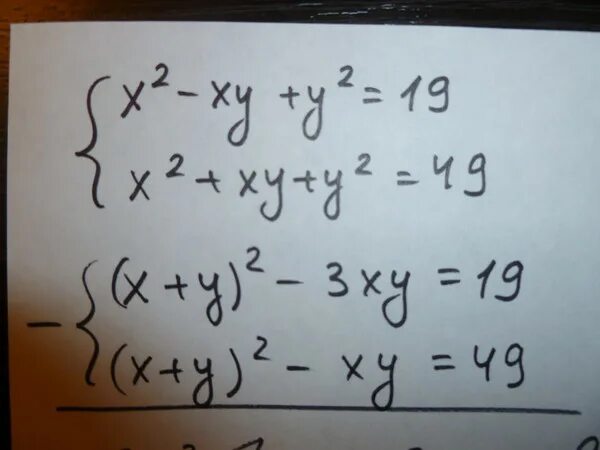 x² - xy + y² = 19
x² + xy + y² = 49
(x + y)² - 3xy = 19
(x + y)² - xy = 49